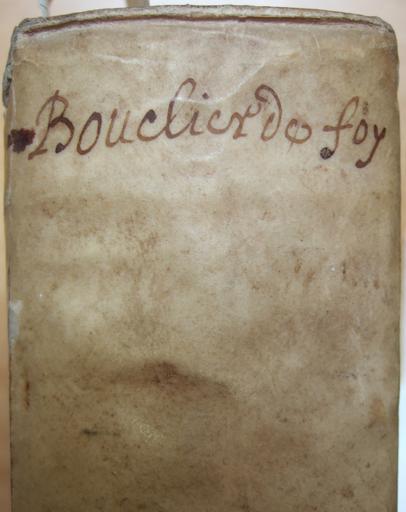 Bouclier de foy